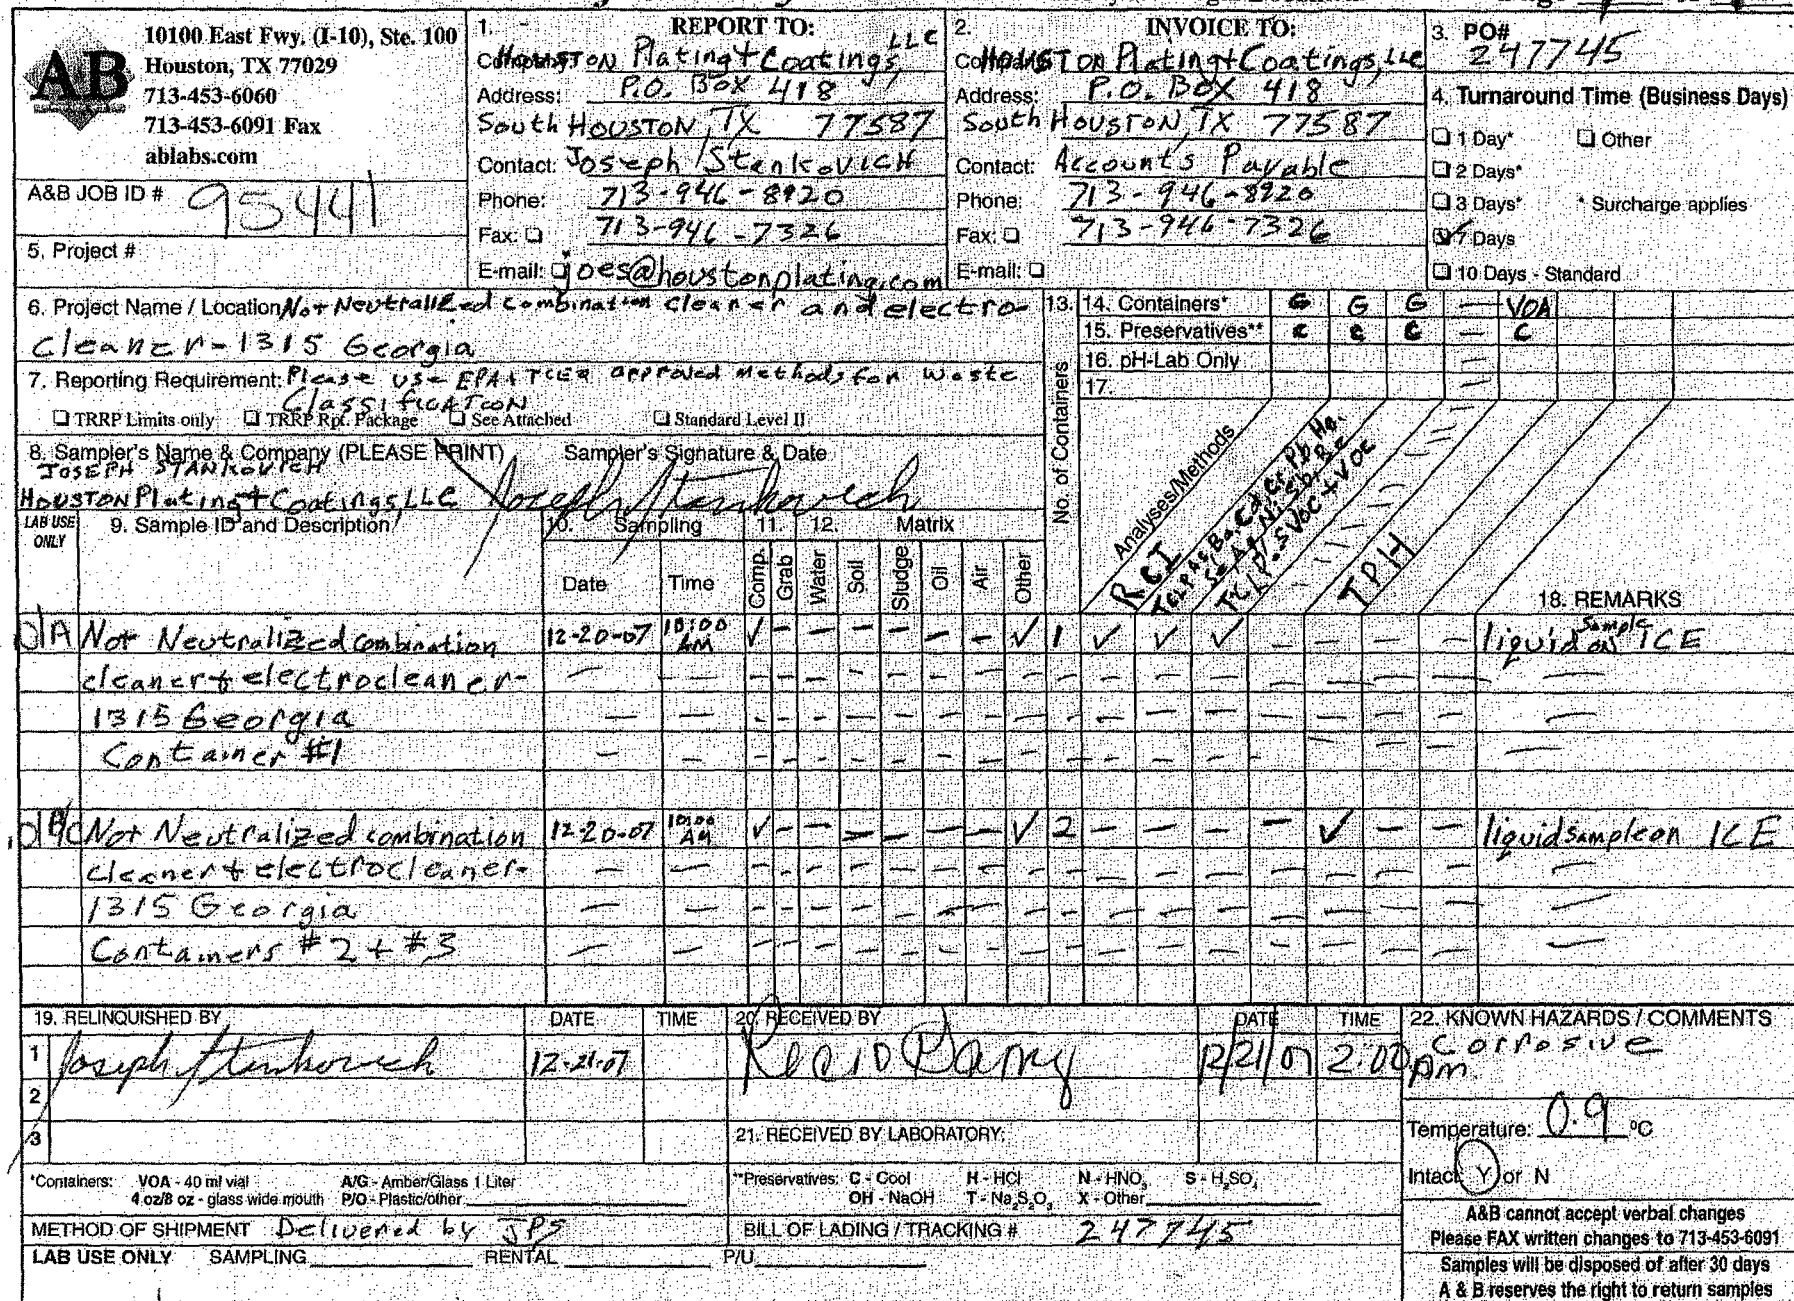 10100 East Fwy. (I-10), Ste. 100
Houston, TX 77029
713-453-6060
713-453-6091 Fax
ablabs.com
AB
A&B JOB ID # 95441
5. Project #
1. REPORT TO:
HOUSTON Plating + Coatings, LLC
Address: P.O. Box 418
South HOUSTON, TX 77587
Contact: Joseph Stankovich
Phone: 713-946-8920
Fax: ❑ 713-946-7326
E-mail: ❑ joes@houstonplating.com
2. INVOICE TO:
HOUSTON Plating + Coatings, LLC
Address: P.O. Box 418
South HOUSTON, TX 77587
Contact: Accounts Payable
Phone: 713-946-8920
Fax: ❑ 713-946-7326
E-mail: ❑
3. PO#
247745
4. Turnaround Time (Business Days)
❑ 1 Day* ❑ Other
❑ 2 Days*
❑ 3 Days* * Surcharge applies
☑ 7 Days
❑ 10 Days - Standard
6. Project Name / Location Not Neutralized combination cleaner and electro-
cleaner - 1315 Georgia
7. Reporting Requirement: Please use EPA + TCEQ approved methods for waste
Classification
❑ TRRP Limits only ❑ TRRP Rpt. Package ❑ See Attached ❑ Standard Level II
8. Sampler's Name & Company (PLEASE PRINT) Sampler's Signature & Date
JOSEPH STANKOVICH
HOUSTON Plating + Coatings, LLC Joseph Stankovich
13. No. of Containers
14. Containers* G G G — VOA
15. Preservatives** C C C — C
16. pH-Lab Only
17.
Analyses/Methods
RCI
TCLP As, Ba, Cd, Cr, Pb, Hg,
Se, Ag, Ni, Sb, Be
TCLP - SVOC + VOC
TPH
LAB USE ONLY 9. Sample ID and Description 10. Sampling 11. 12. Matrix
Date Time Comp. Grab Water Soil Sludge Oil Air Other
18. REMARKS
01A Not Neutralized combination 12-20-07 10:00 AM ✓ — — — — — — ✓ 1 ✓ ✓ ✓ — — — — liquid sample on ICE
cleaner + electrocleaner-
1315 Georgia
Container #1
Not Neutralized combination 12-20-07 10:00 AM ✓ — — — — — — ✓ 2 — — — — ✓ — — liquid sample on ICE
cleaner + electrocleaner-
1315 Georgia
Containers #2 + #3
19. RELINQUISHED BY DATE TIME 20. RECEIVED BY DATE TIME
1 Joseph Stankovich 12-21-07 12/21/07 2:00 pm
2
3
21. RECEIVED BY LABORATORY:
22. KNOWN HAZARDS / COMMENTS
Corrosive
Temperature: 0.9 °C
Intact Y or N
*Containers: VOA - 40 ml vial A/G - Amber/Glass 1 Liter
4 oz/8 oz - glass wide mouth P/O - Plastic/other
**Preservatives: C - Cool H - HCl N - HNO3 S - H2SO4
OH - NaOH T - Na2S2O3 X - Other
METHOD OF SHIPMENT Delivered by JPS
BILL OF LADING / TRACKING # 247745
LAB USE ONLY SAMPLING RENTAL P/U
A&B cannot accept verbal changes
Please FAX written changes to 713-453-6091
Samples will be disposed of after 30 days
A & B reserves the right to return samples